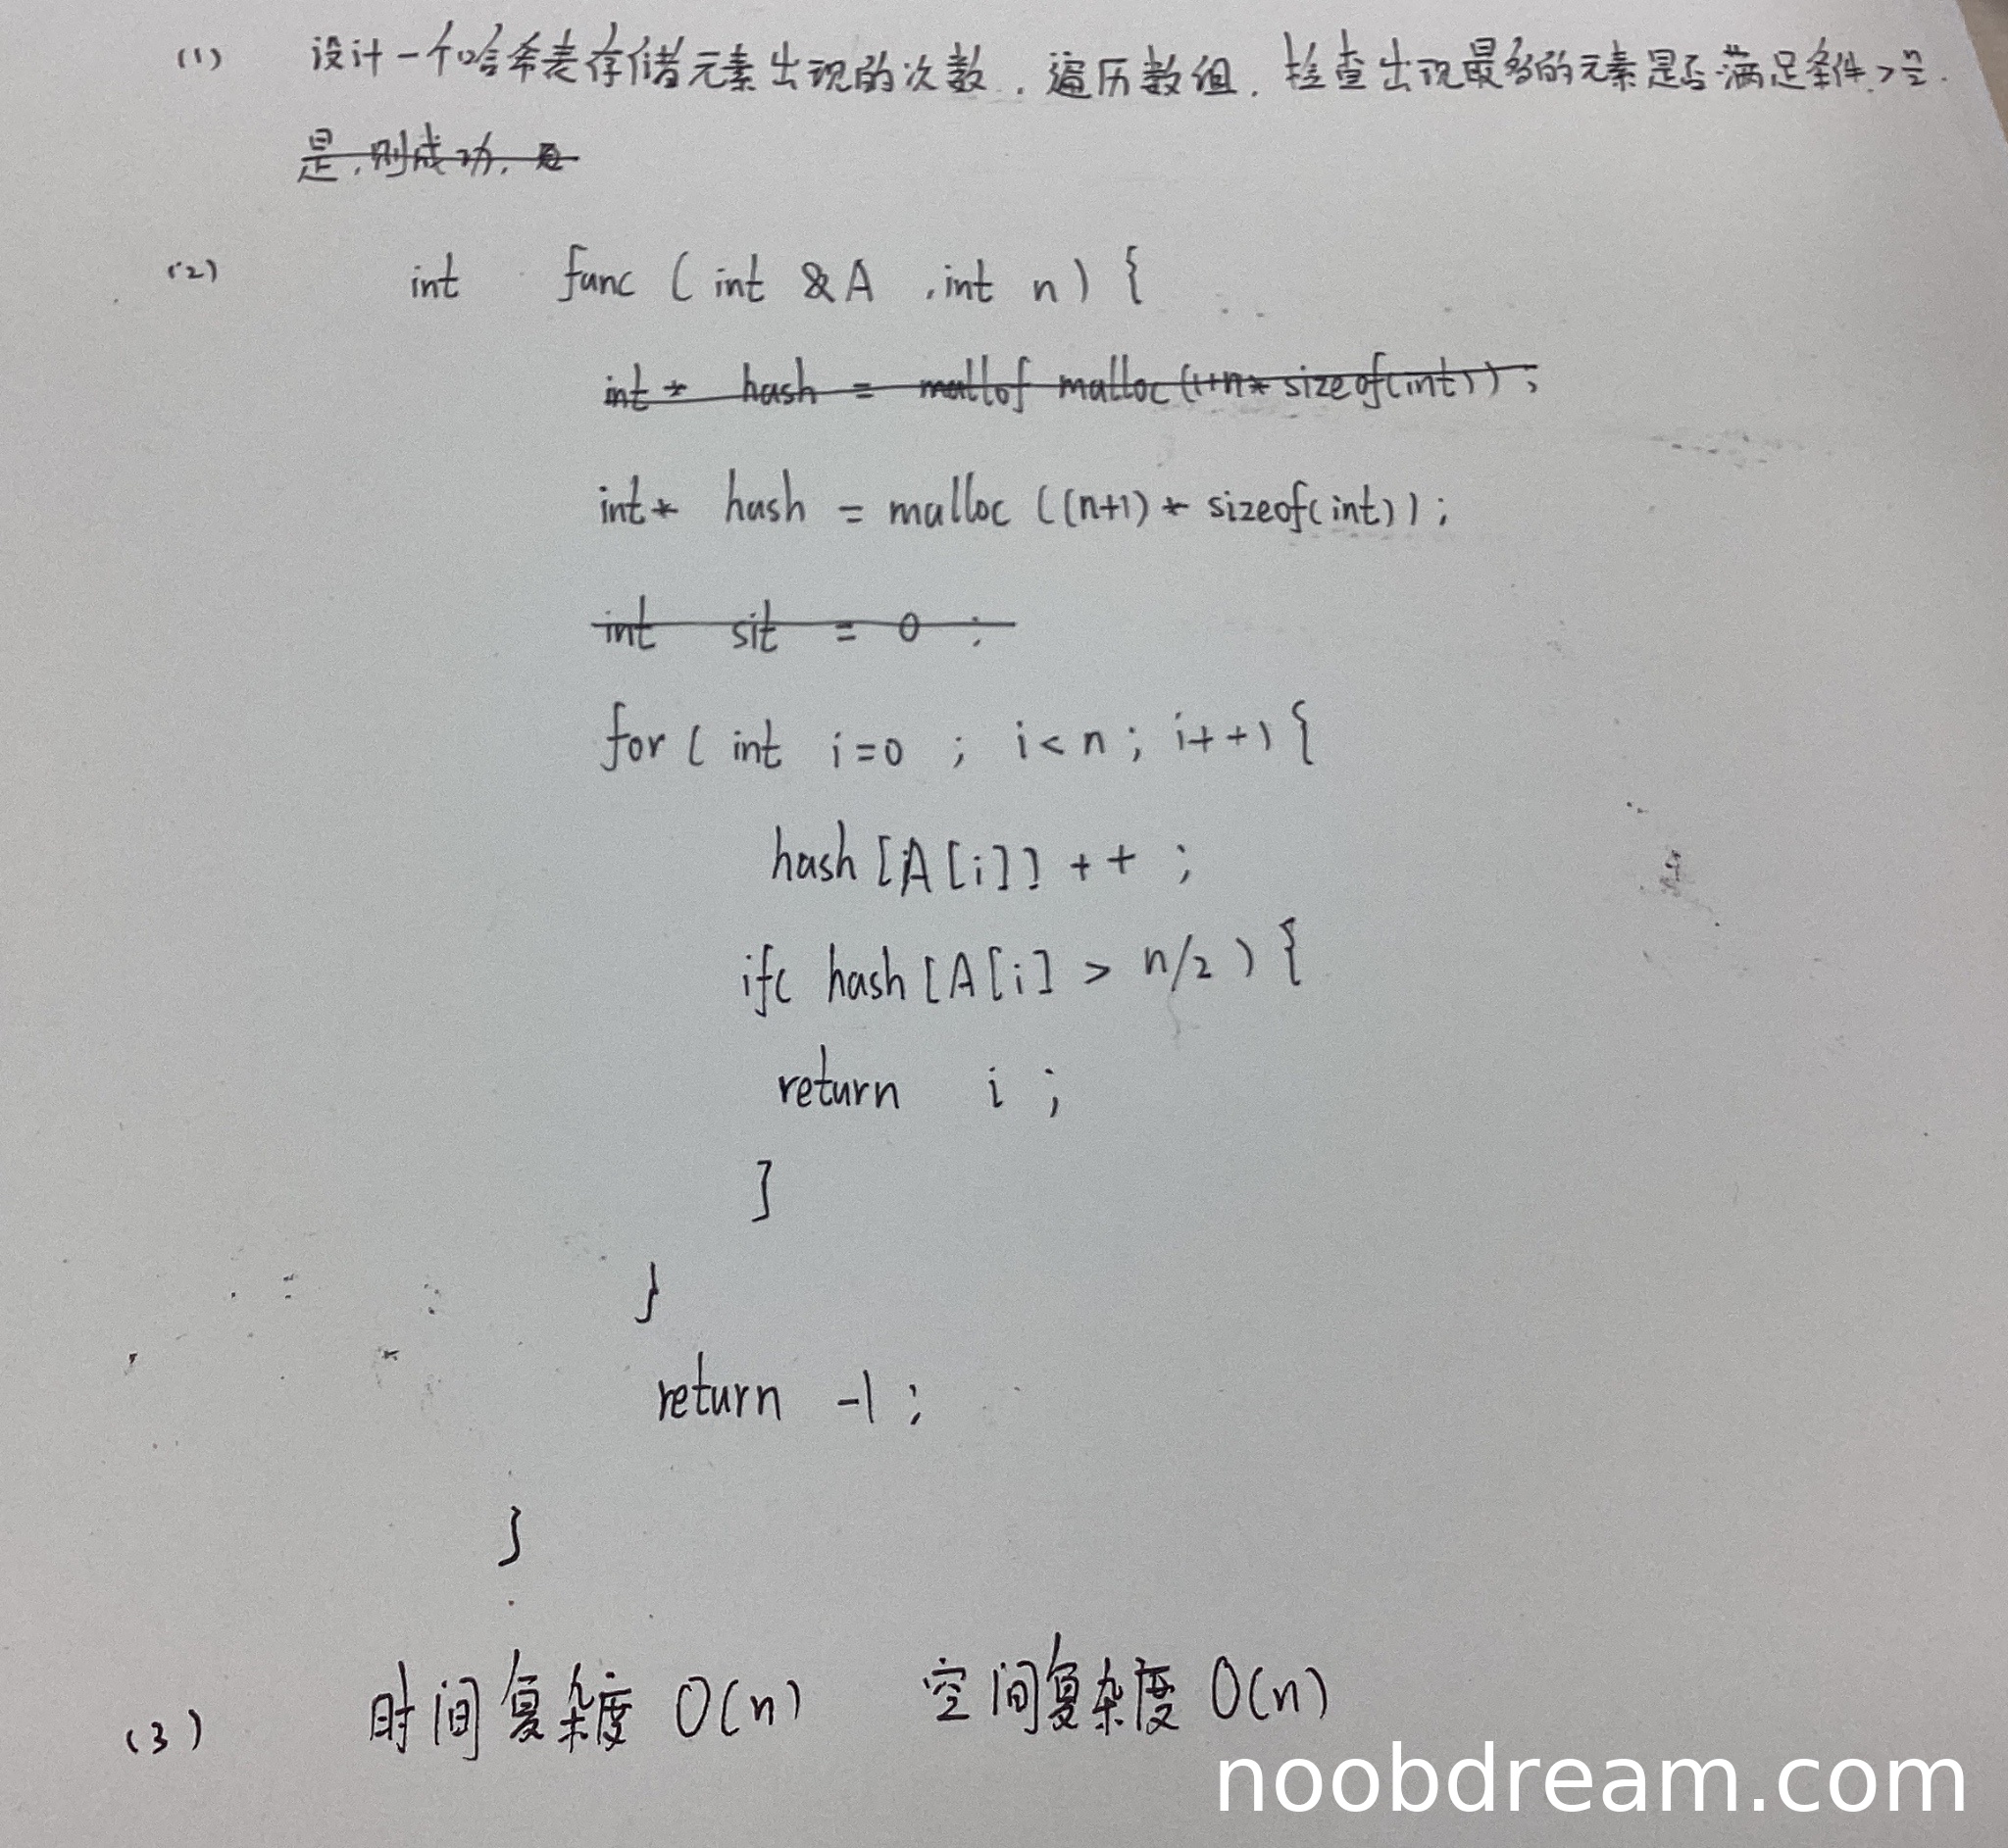 (1) 设计一个哈希表存储元素出现的次数.遍历数组.检查出现最多的元素是否满足条件>n/2.
是.则成功.
(2) int func ( int &A ,int n) {
int* hash = mallof malloc(1+n* sizeof(int)) ;
int* hash = malloc ((n+1) * sizeof(int)) ;
int sit = 0 ;
for ( int i=0 ; i<n ; i++) {
hash [A[i]] ++ ;
if( hash [A[i] > n/2 ) {
return i ;
}
}
return -1 ;
}
(3) 时间复杂度 O(n) 空间复杂度 O(n)
noobdream.com